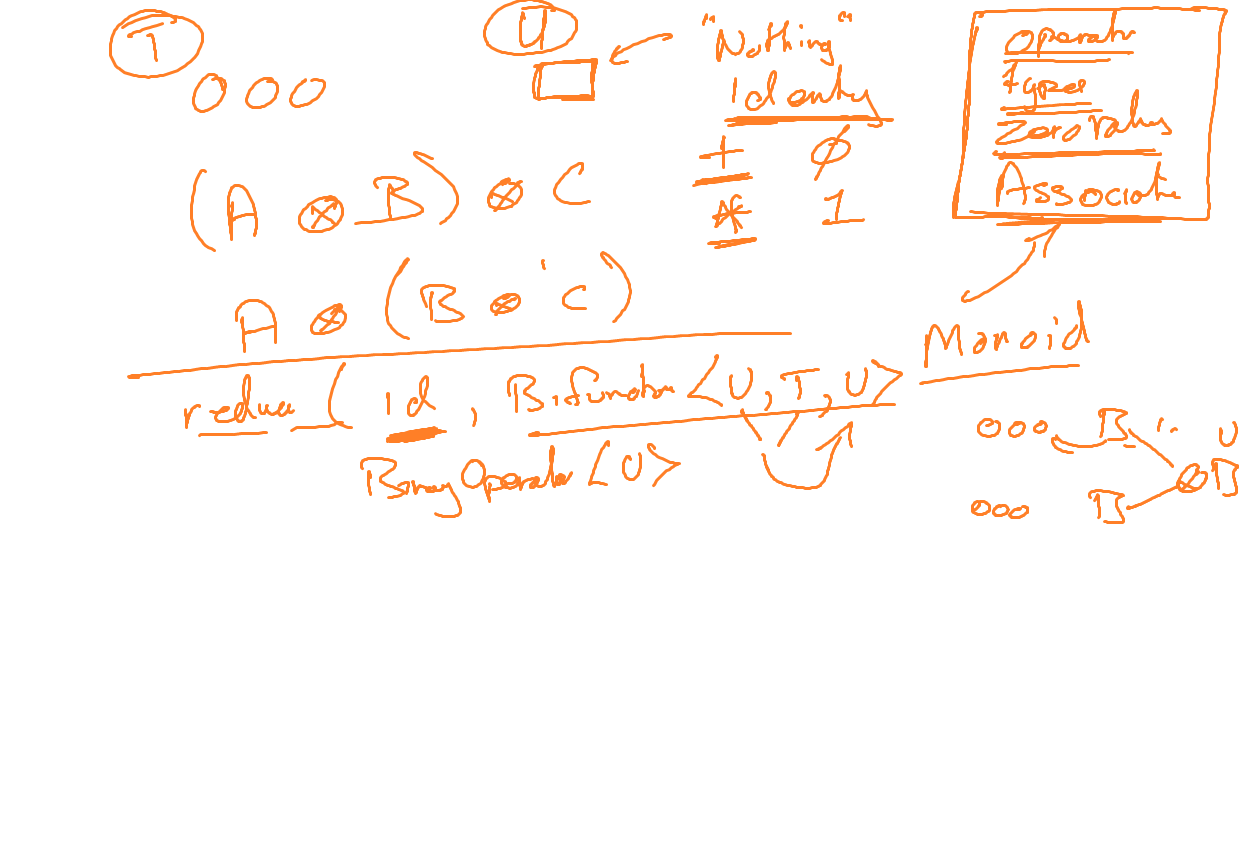 T
U
"Nothing"
Identity
+ Ø
* 1
Operator
types
Zero Value
Associative
(A ⊗ B) ⊗ C
A ⊗ (B ⊗ C)
Monoid
reduce ( id , Bifunction <U, T, U>
BinaryOperator <U>
U